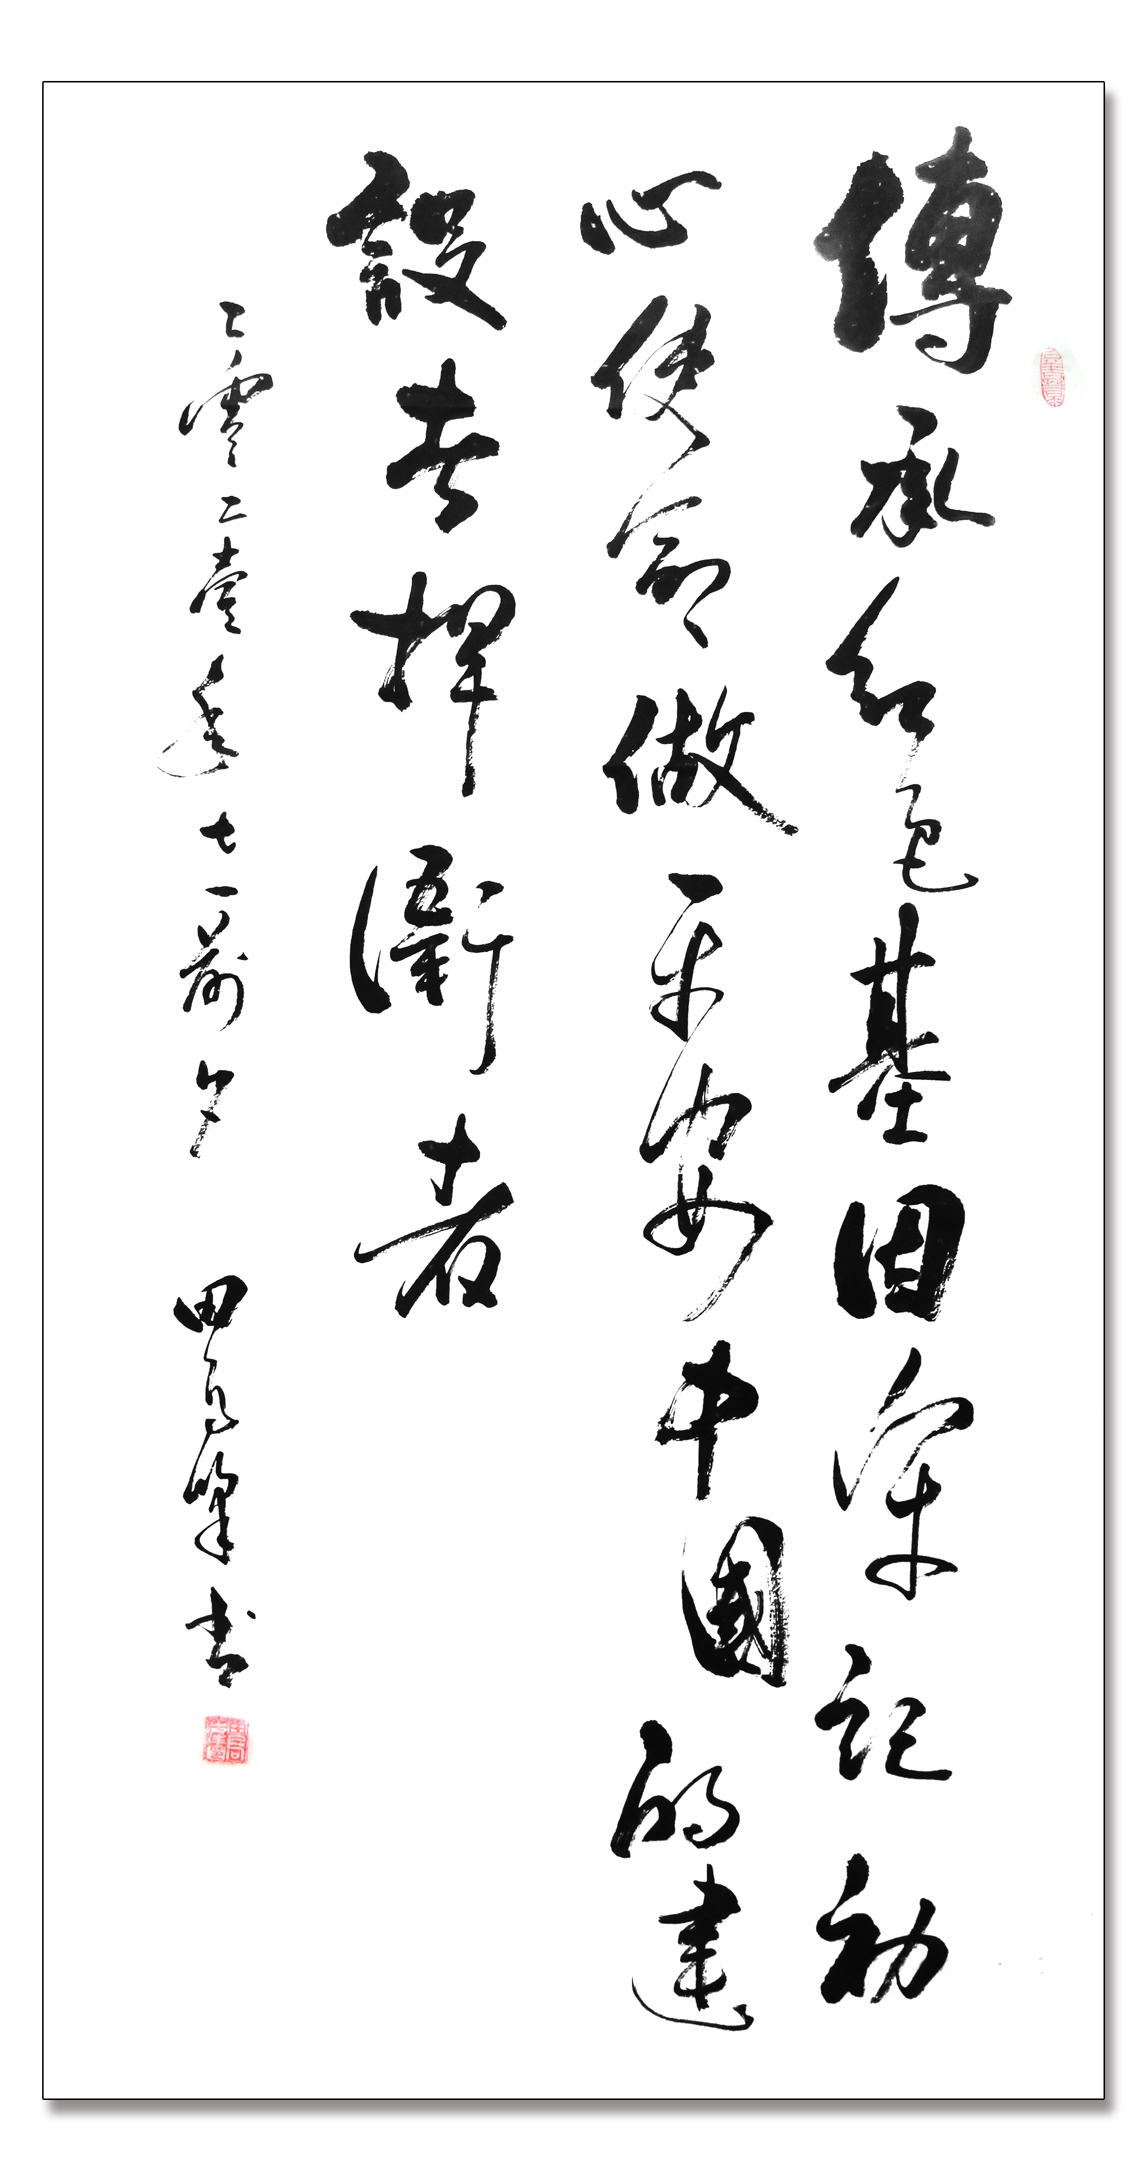 傳承红色基因牢记初
心使命做平安中國的建
設者捍衛者
二零二壹年七一前夕 田书